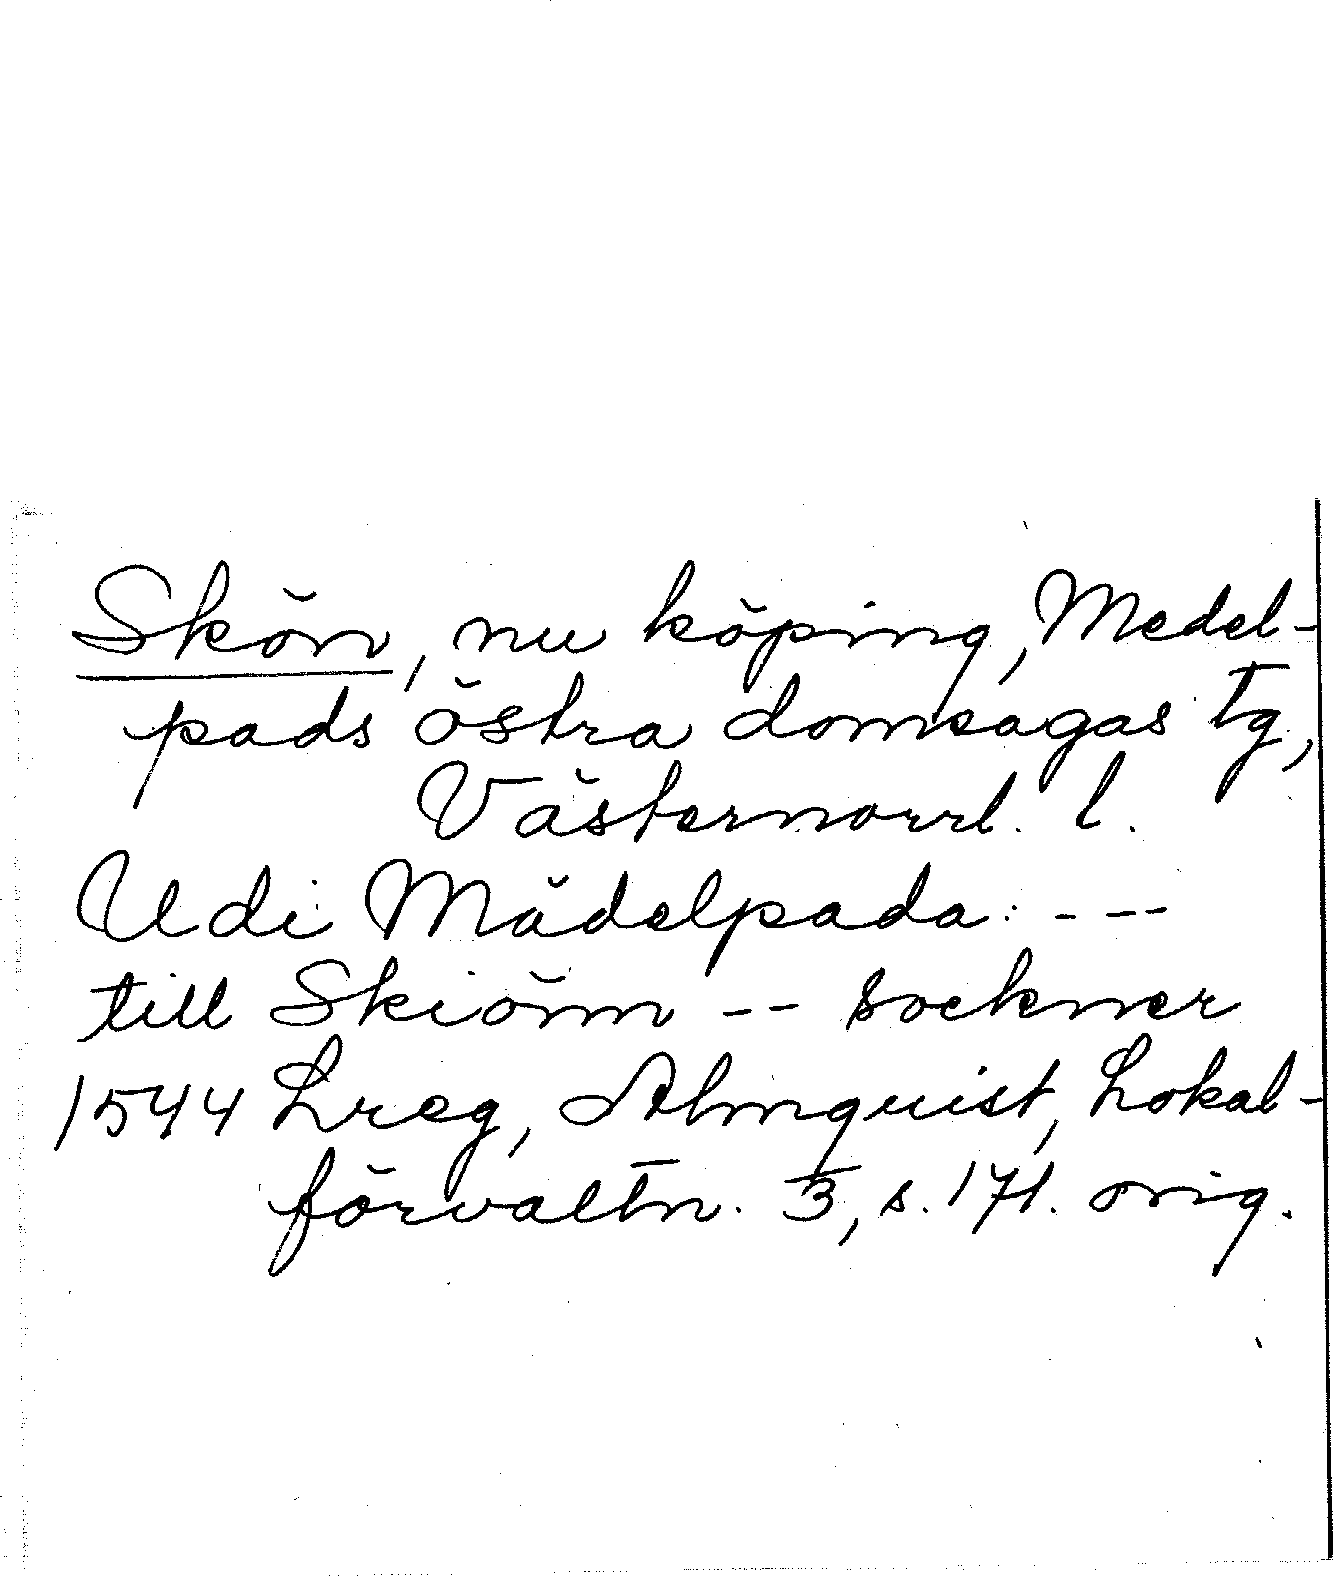 Skön, nu köping, Medel-
pads östra domsagas tg,
Västernorrl. l.
Udi Mädelpada: - --
till Skiönn -- sockner
1544 Lreg, Almquist, Lokal-
förvaltn. 3, s. 171. orig.